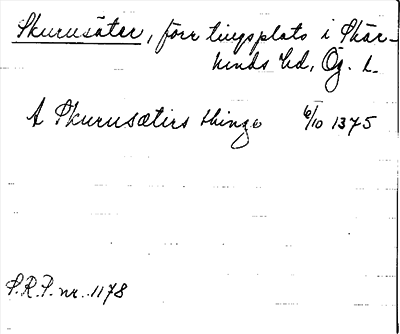 Skurusäter, förr tingsplats i Skär-
kinds hd, Ög. l.
A Skurusætirs thinge 6/10 1375
S.R.P. nr. 1178